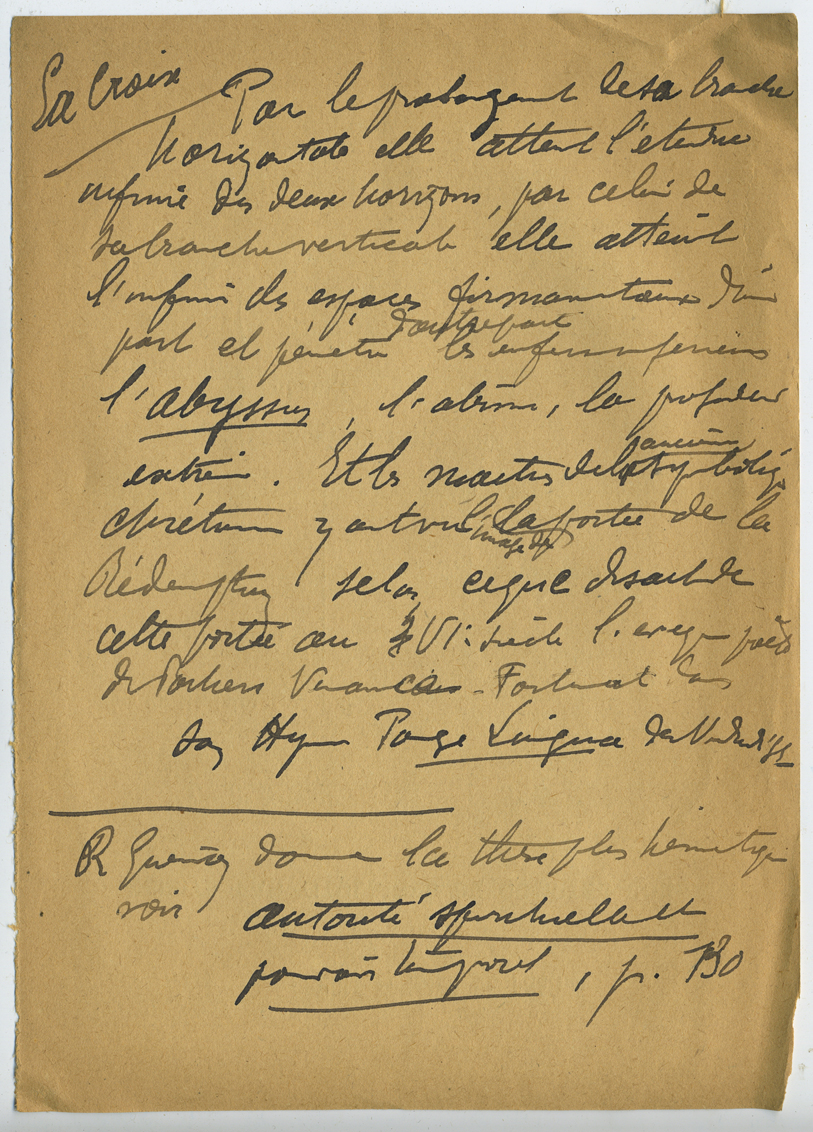 La Croix Par le prolongement de sa branche
horizontale elle atteint l'étendue
infinie des deux horizons, par celui de
sa branche verticale elle atteint
l'infini des espaces firmamentaux d'une
part et pénètre d'autre part les enfers inférieurs
l'abyssus, l'abîme, la profondeur
extrême. Et les maîtres de l'ancienne symbolique
chrétienne y ont vu l'image de la portée de la
Rédemption selon ce que disait de
cette portée au VIe siècle l'évêque poète
de Poitiers Venance-Fortunat dans
son Hymne Pange Lingua du Vendredi St
R Guénon donne la thèse plus hermétique
voir autorité spirituelle et
pouvoir temporel, p. 130